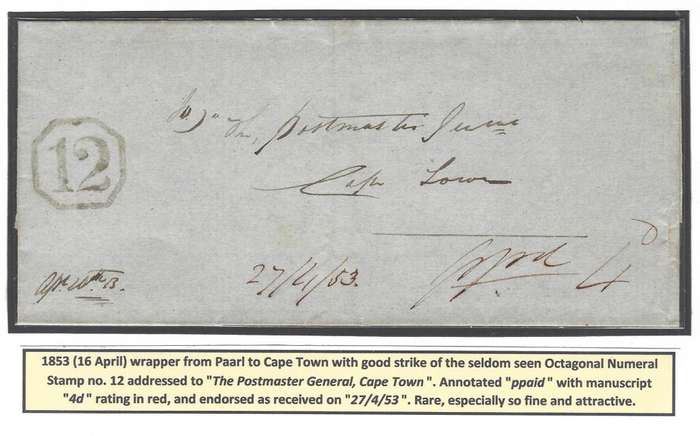 12
Postmaster
Cape Town
27/4/53.
ppd 4d
1853 (16 April) wrapper from Paarl to Cape Town with good strike of the seldom seen Octagonal Numeral
Stamp no. 12 addressed to "The Postmaster General, Cape Town". Annotated "ppaid" with manuscript
"4d" rating in red, and endorsed as received on "27/4/53". Rare, especially so fine and attractive.